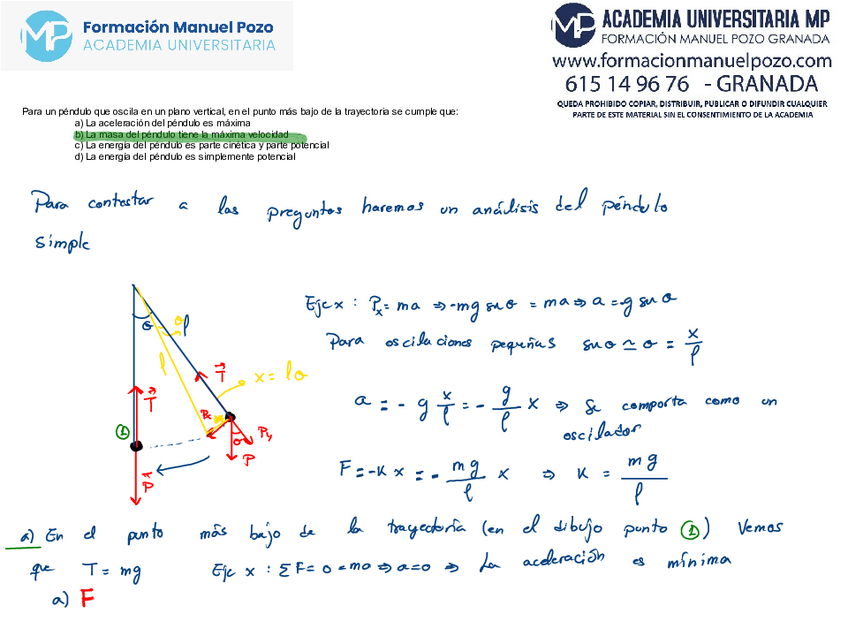 MP
Formación Manuel Pozo
ACADEMIA UNIVERSITARIA
MP
ACADEMIA UNIVERSITARIA MP
FORMACIÓN MANUEL POZO GRANADA
www.formacionmanuelpozo.com
615 14 96 76 - GRANADA
QUEDA PROHIBIDO COPIAR, DISTRIBUIR, PUBLICAR O DIFUNDIR CUALQUIER
PARTE DE ESTE MATERIAL SIN EL CONSENTIMIENTO DE LA ACADEMIA
Para un péndulo que oscila en un plano vertical, en el punto más bajo de la trayectoria se cumple que:
a) La aceleración del péndulo es máxima
b) La masa del péndulo tiene la máxima velocidad
c) La energía del péndulo es parte cinética y parte potencial
d) La energía del péndulo es simplemente potencial
Para contestar a las preguntas haremos un análisis del péndulo
simple
Eje x : Px = ma ⇒ -mg senθ = ma ⇒ a = -g senθ
Para oscilaciones pequeñas senθ ≃ θ = x/l
a = - g x/l = - g/l x ⇒ Se comporta como un
oscilador
F = -K x = - mg/l x ⇒ K = mg/l
θ
θ
l
l
T
x = lθ
T
Px
θ
Py
P
①
P
a) En el punto más bajo de la trayectoria (en el dibujo punto ①) Vemos
que T = mg Eje x : ΣF = 0 = ma ⇒ a = 0 ⇒ La aceleración es mínima
a) F